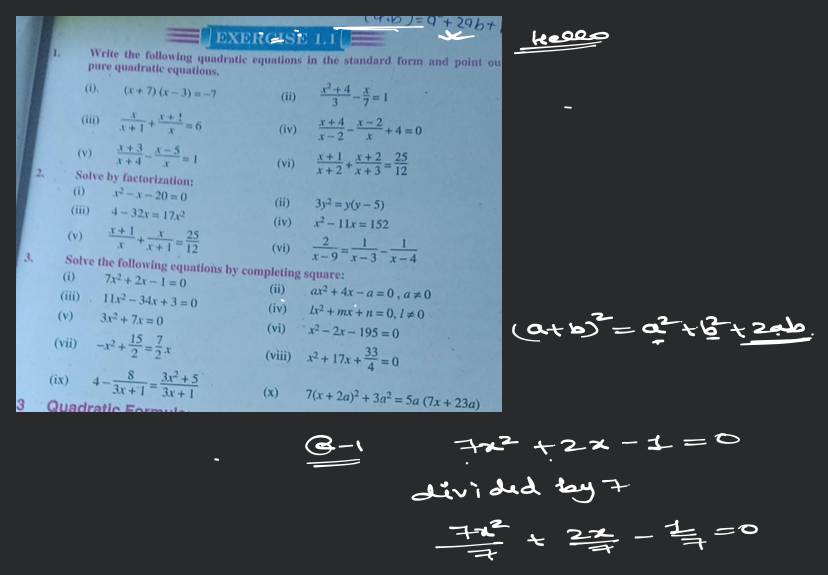 (a+b) = a² + 2ab +
EXERCISE 1.1
Hello
1. Write the following quadratic equations in the standard form and point ou
pure quadratic equations.
(i). (x + 7) (x – 3) = –7 (ii) (x² + 4)/3 – x/7 = 1
(iii) x/(x + 1) + (x + 1)/x = 6 (iv) (x + 4)/(x – 2) – (x – 2)/x + 4 = 0
(v) (x + 3)/(x + 4) – (x – 5)/x = 1 (vi) (x + 1)/(x + 2) + (x + 2)/(x + 3) = 25/12
2. Solve by factorization:
(i) x² – x – 20 = 0 (ii) 3y² = y(y – 5)
(iii) 4 – 32x = 17x² (iv) x² – 11x = 152
(v) (x + 1)/x + x/(x + 1) = 25/12 (vi) 2/(x – 9) = 1/(x – 3) – 1/(x – 4)
3. Solve the following equations by completing square:
(i) 7x² + 2x – 1 = 0 (ii) ax² + 4x – a = 0 , a ≠ 0
(iii) 11x² – 34x + 3 = 0 (iv) lx² + mx + n = 0, l ≠ 0
(v) 3x² + 7x = 0 (vi) x² – 2x – 195 = 0
(vii) –x² + 15/2 = 7/2 x (viii) x² + 17x + 33/4 = 0
(ix) 4 – 8/(3x + 1) = (3x² + 5)/(3x + 1) (x) 7(x + 2a)² + 3a² = 5a (7x + 23a)
3 Quadratic
(a+b)² = a² + b² + 2ab
Q-1 7x² + 2x – 1 = 0
divided by 7
7x²/7 + 2x/7 – 1/7 = 0